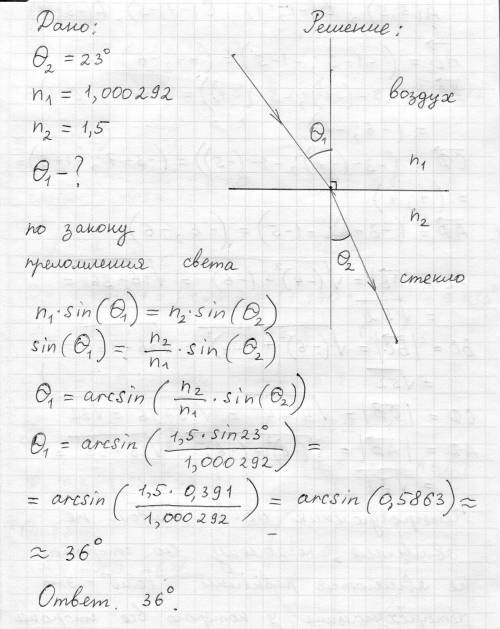 Дано:
Решение:
θ₂ = 23°
n₁ = 1,000292
n₂ = 1,5
θ₁ - ?
воздух
θ₁
n₁
n₂
θ₂
стекло
по закону
преломления света
n₁·sin(θ₁) = n₂·sin(θ₂)
sin(θ₁) = n₂/n₁ · sin(θ₂)
θ₁ = arcsin(n₂/n₁ · sin(θ₂))
θ₁ = arcsin(1,5·sin23°/1,000292) =
= arcsin(1,5·0,391/1,000292) = arcsin(0,5863) ≈
≈ 36°
Ответ. 36°.